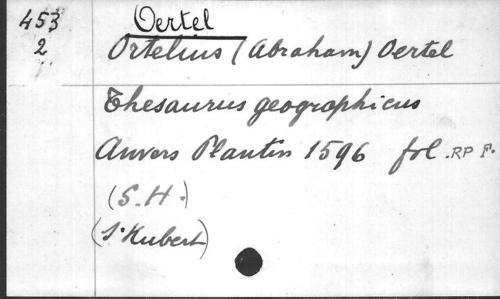 453
2
Oertel
Ortelius (Abraham) Oertel
Thesaurus geographicus
Anvers Plantin 1596 fol. RP F.
(S.H.)
(S. Hubert)